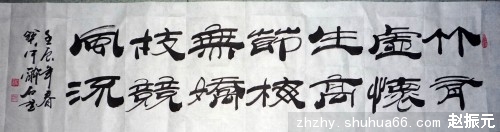 竹有
虛懷
生高
節梅
無嬌
枝競
風流
壬辰年春
zhzhy.shuhua66.com 赵振元